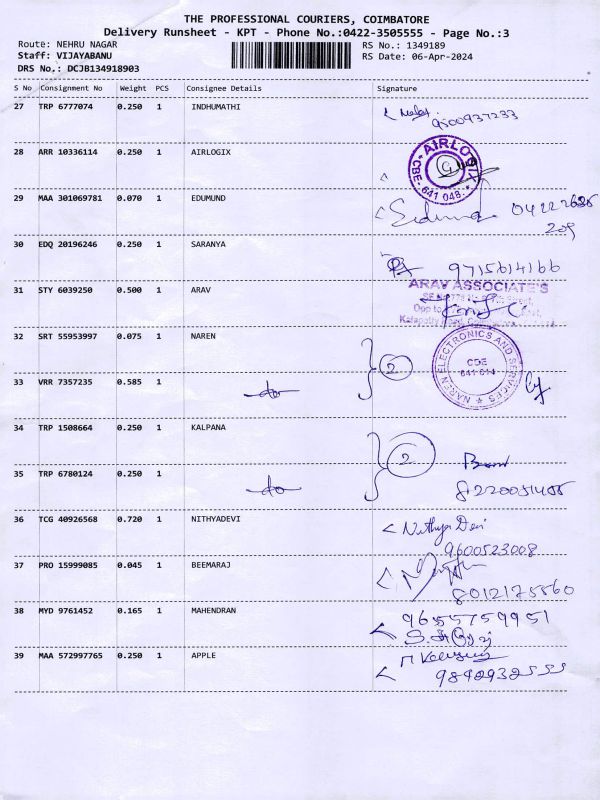 THE PROFESSIONAL COURIERS, COIMBATORE
Delivery Runsheet - KPT - Phone No.:0422-3505555 - Page No.:3
Route: NEHRU NAGAR RS No.: 1349189
Staff: VIJAYABANU RS Date: 06-Apr-2024
DRS No.: DCJB134918903
S No Consignment No Weight PCS Consignee Details Signature
27 TRP 6777074 0.250 1 INDHUMATHI
9500937233
28 ARR 10336114 0.250 1 AIRLOGIX
AIRLOGIX
CBE- 641 048.
29 MAA 301069781 0.070 1 EDUMUND
30 EDQ 20196246 0.250 1 SARANYA
9715614166
31 STY 6039250 0.500 1 ARAV
ARAV ASSOCIATE'S
32 SRT 55953997 0.075 1 NAREN
2
NAREN ELECTRONICS AND SERVICES
641 014
33 VRR 7357235 0.585 1 do
34 TRP 1508664 0.250 1 KALPANA
2
35 TRP 6780124 0.250 1 do
36 TCG 40926568 0.720 1 NITHYADEVI
Nithya Devi
9600523008
37 PRO 15999085 0.045 1 BEEMARAJ
8012175560
38 MYD 9761452 0.165 1 MAHENDRAN
39 MAA 572997765 0.250 1 APPLE